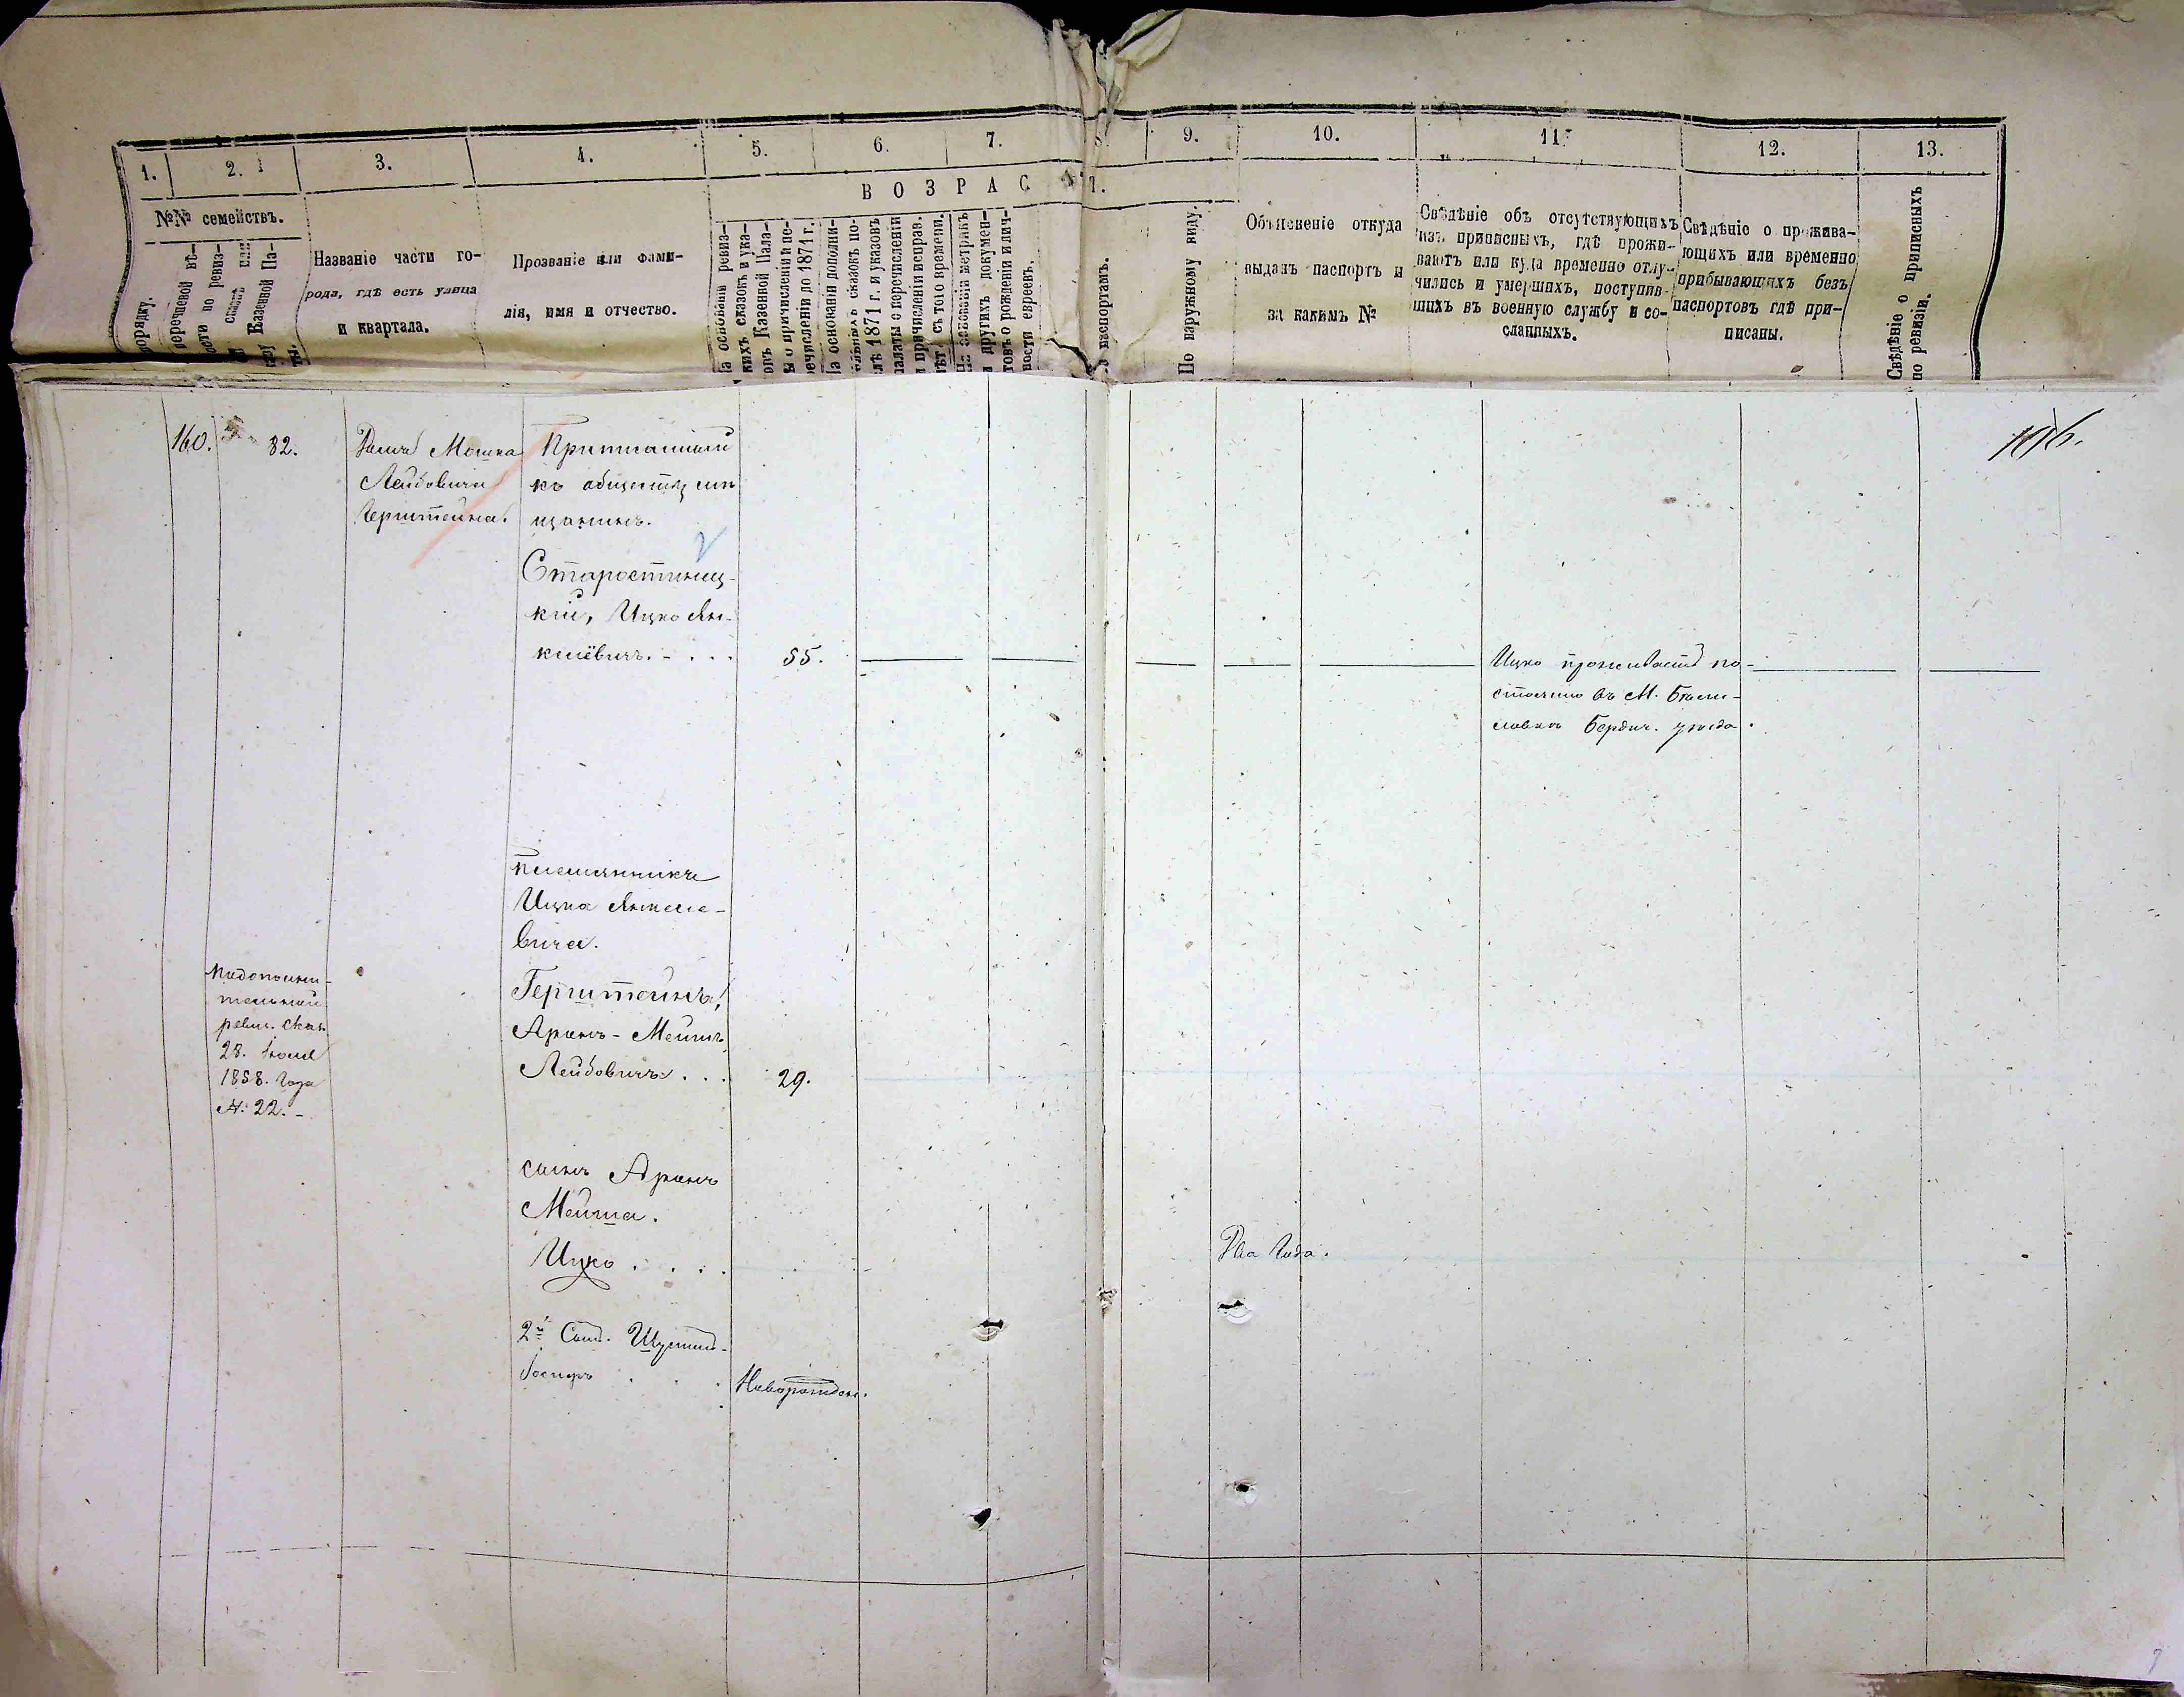 1. 2. 3. 4. 5. 6. 7. 8. 9. 10. 11. 12. 13.
№№ семействъ.
порядку.
перечневой вѣ-
ости по ревиз-
Казенной Па-
ты.
Названіе части го-
рода, гдѣ есть улица
и квартала.
Прозваніе или фами-
лія, имя и отчество.
ВОЗРАСТ.
На основаніи ревиз-
кихъ сказокъ и ука-
овъ Казенной Пала-
ы о причисленіи и пе-
ечисленіи до 1871 г.
На основаніи дополни-
ельныхъ сказокъ по-
лѣ 1871 г. и указовъ
палаты о перечисленіи
и причисленіи исправ.
лѣтъ съ того времени.
На основаніи метрикъ
и другихъ докумен-
товъ о рожденіи и лич-
ности евреевъ.
По паспортамъ.
По наружному виду.
Объясненіе откуда
выданъ паспортъ и
за какимъ №
Свѣдѣніе объ отсутствующихъ
изъ приписныхъ, гдѣ прожи-
ваютъ или куда временно отлу-
чились и умершихъ, поступив-
шихъ въ военную службу и со-
сланныхъ.
Свѣдѣніе о прожива-
ющихъ или временно
прибывающихъ безъ
паспортовъ гдѣ при-
писаны.
Свѣдѣніе о приписныхъ
по ревизіи.
106.
160. 82.
Мошка
Лейбовичи
Герштейна.
къ обществу мѣ
щанинъ.
Старостинец-
кій, Ицко Ян-
келёвичъ. - . . . 55.
Ицко проживаетъ по-
стоянно въ М. Бѣли-
ловкѣ Бердич. уѣзда.
племянникъ
Ицка Янкеле-
вича.
Герштейнъ,
Аронъ-Мейшъ
Лейбовичъ . . . 29.
По дополни-
тельной
ревиз. сказ.
28. Іюня
1858. года
№ 22. -
сынъ Аронъ
Мейша.
Ицко . . . .
Два года.
2й Сынъ.
Іосифъ . . . Новорожден.